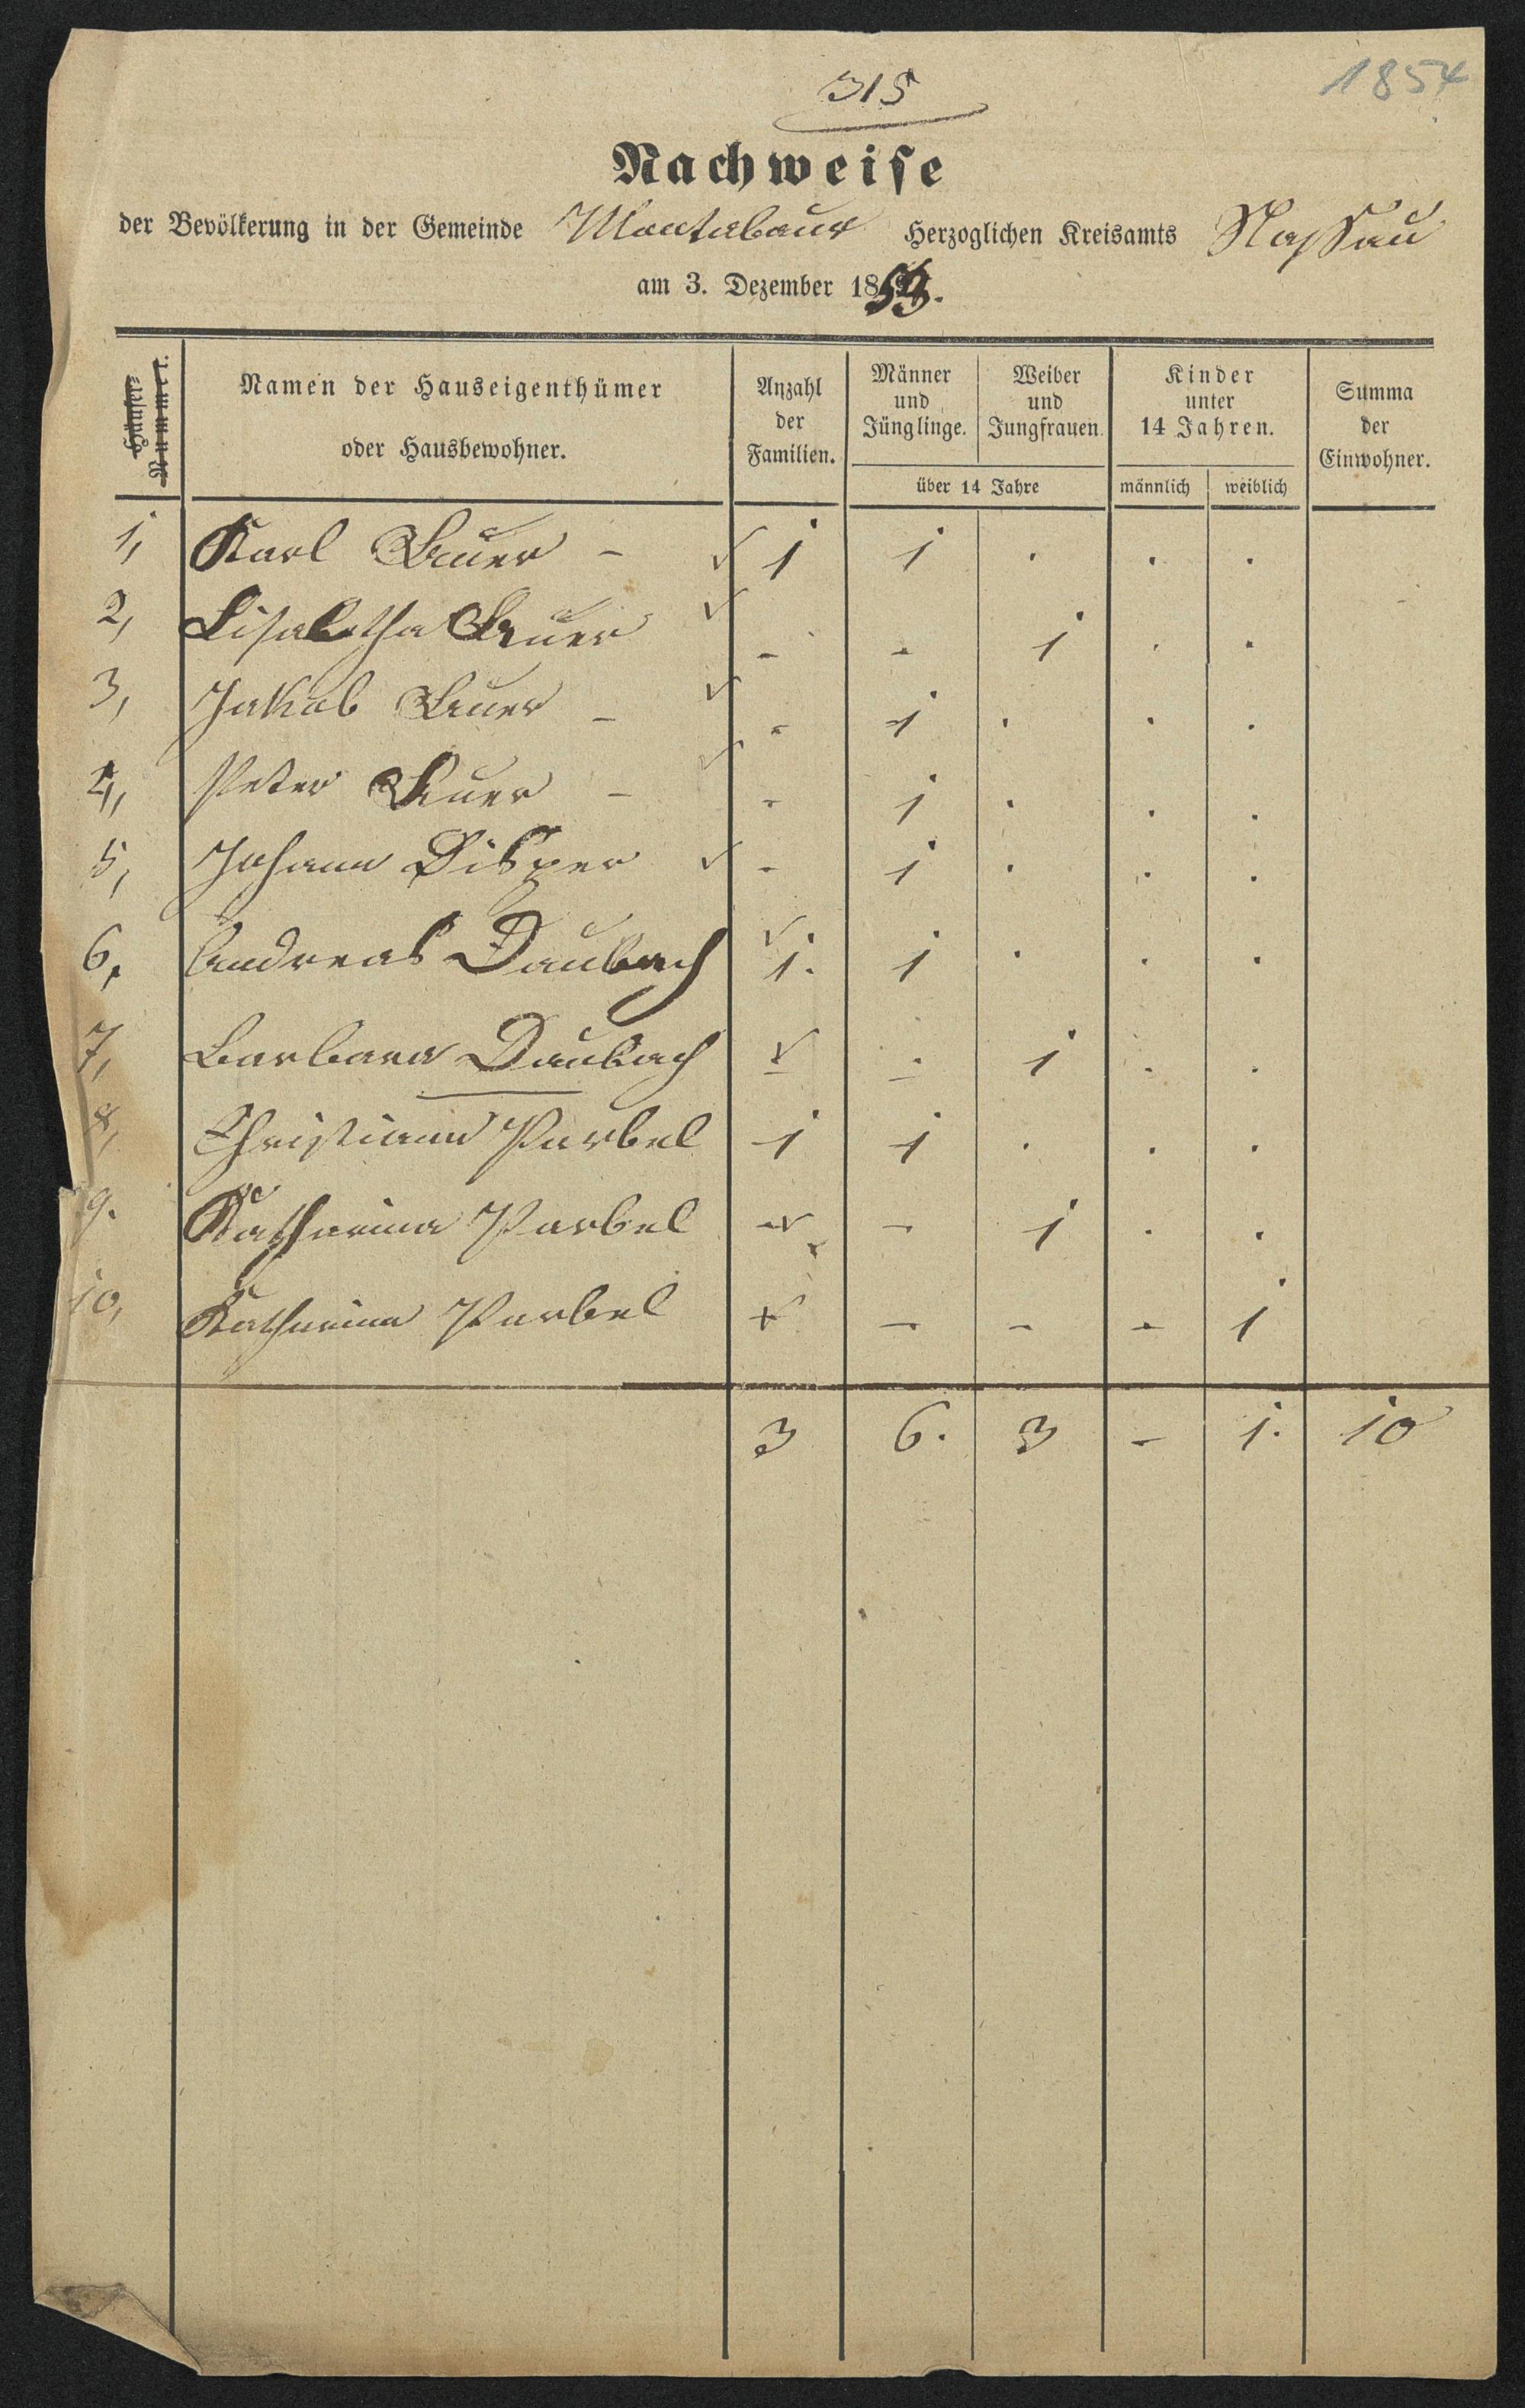 315
1854
Nachweise
der Bevölkerung in der Gemeinde Montabaur Herzoglichen Kreisamts Nassau
am 3. Dezember 1853.
Häuser-Nummer.
Namen der Hauseigenthümer
oder Hausbewohner.
Anzahl
der
Familien.
Männer
und
Jünglinge.
Weiber
und
Jungfrauen.
über 14 Jahre
Kinder
unter
14 Jahren.
männlich weiblich
Summa
der
Einwohner.
1, Karl Bauer - ✓ 1 1 . . .
2, Lisabetha Bauer ✓ - - 1 . .
3, Jakob Bauer - ✓ - 1 . . .
4, Peter Bauer - ✓ - 1 . . .
5, Johann Disper ✓ - 1 . . .
6, Andreas Daubach ✓ 1. 1 . . .
7, Barbara Daubach ✓ - - 1 . .
8, Christian Parbel 1 1 . . .
9. Katharina Parbel ✓ - 1 . .
10, Katharina Parbel ✓ - - - 1
3 6. 3 - 1. 10